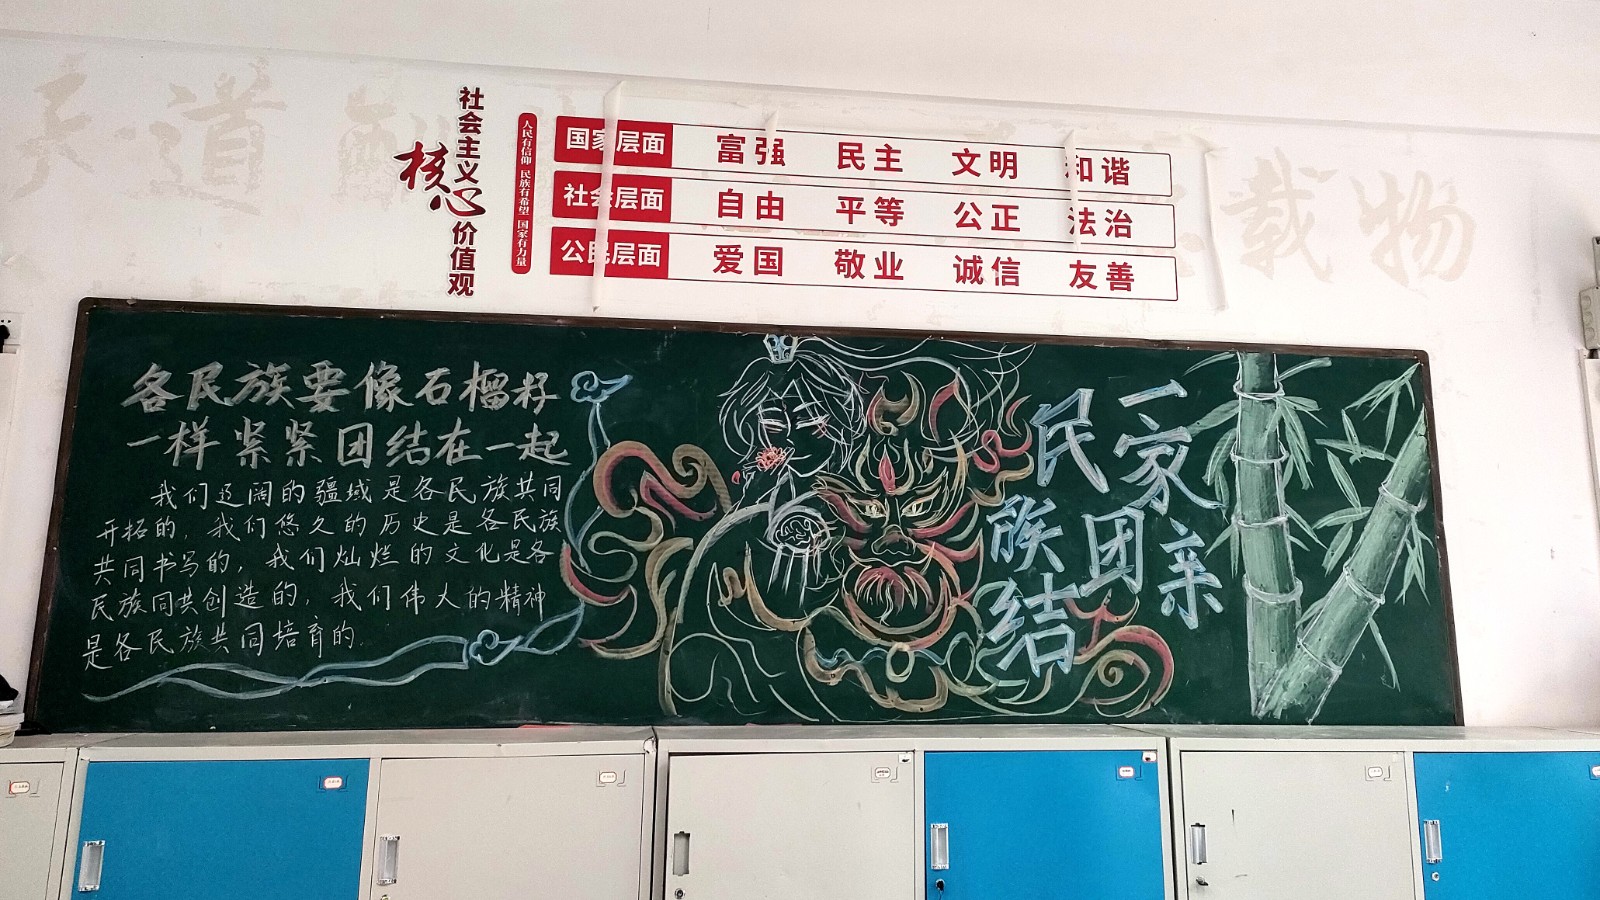 天道
载物
社会主义
核心
价值观
人民有信仰 民族有希望 国家有力量
国家层面 富强 民主 文明 和谐
社会层面 自由 平等 公正 法治
公民层面 爱国 敬业 诚信 友善
各民族要像石榴籽
一样紧紧团结在一起
我们辽阔的疆域是各民族共同
开拓的，我们悠久的历史是各民族
共同书写的，我们灿烂的文化是各
民族同共创造的，我们伟大的精神
是各民族共同培育的.
一家亲
民族团结